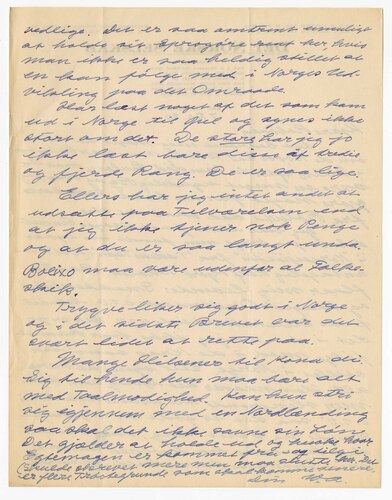 vedlige. Det er saa omtrent umuligt
at holde sit Sprogøre rent her, hvis
man ikke er saa heldig stillet at
en kan følge med i Norges Ud-
vikling paa det Omraade.
Har læst noget af det som kom
ud i Norge til Jul og synes ikke
stort om det. De store har jeg jo
ikke læst bare disse af tredie
og fjerde Rang. De er saa lige.
Ellers har jeg intet andet at
udsætte paa Tilværelsen end
at jeg ikke tjener nok Penge
og at du er saa langt unda.
Bolixo maa være udenfor al Folke-
skik.
Trygve liker sig godt i Norge
og i det sidste Brevet var det
svært lidet at rette paa.
Mange Hilsener til Kona di
Sig til hende hun maa bære alt
med Taalmodighed. Kan hun stri
sig igjennem med en Nordlænding
saa skal det ikke savne sin Løn
Det gjælder at holde ud og huske hvor
Egtemagen er kommet fra, sig
skulde skrevet mere men maa slutte her. Du
er flere Trøstegrunde som skal komme senere
din